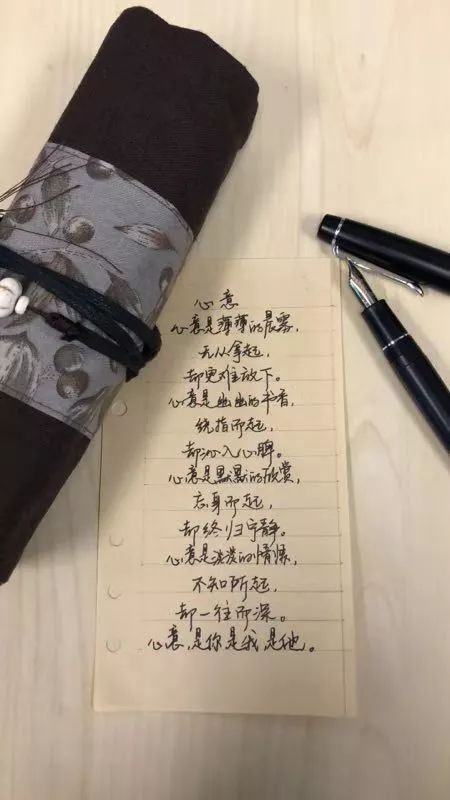 心意
心意是薄薄的晨雾，
无从拿起，
却更难放下。
心意是幽幽的卉香，
绕指而起，
却沁入心脾。
心意是默默的欣赏，
忘身而起，
却终归宁静。
心意是淡淡的情愫，
不知所起，
却一往而深。
心意，是你是我，是他。